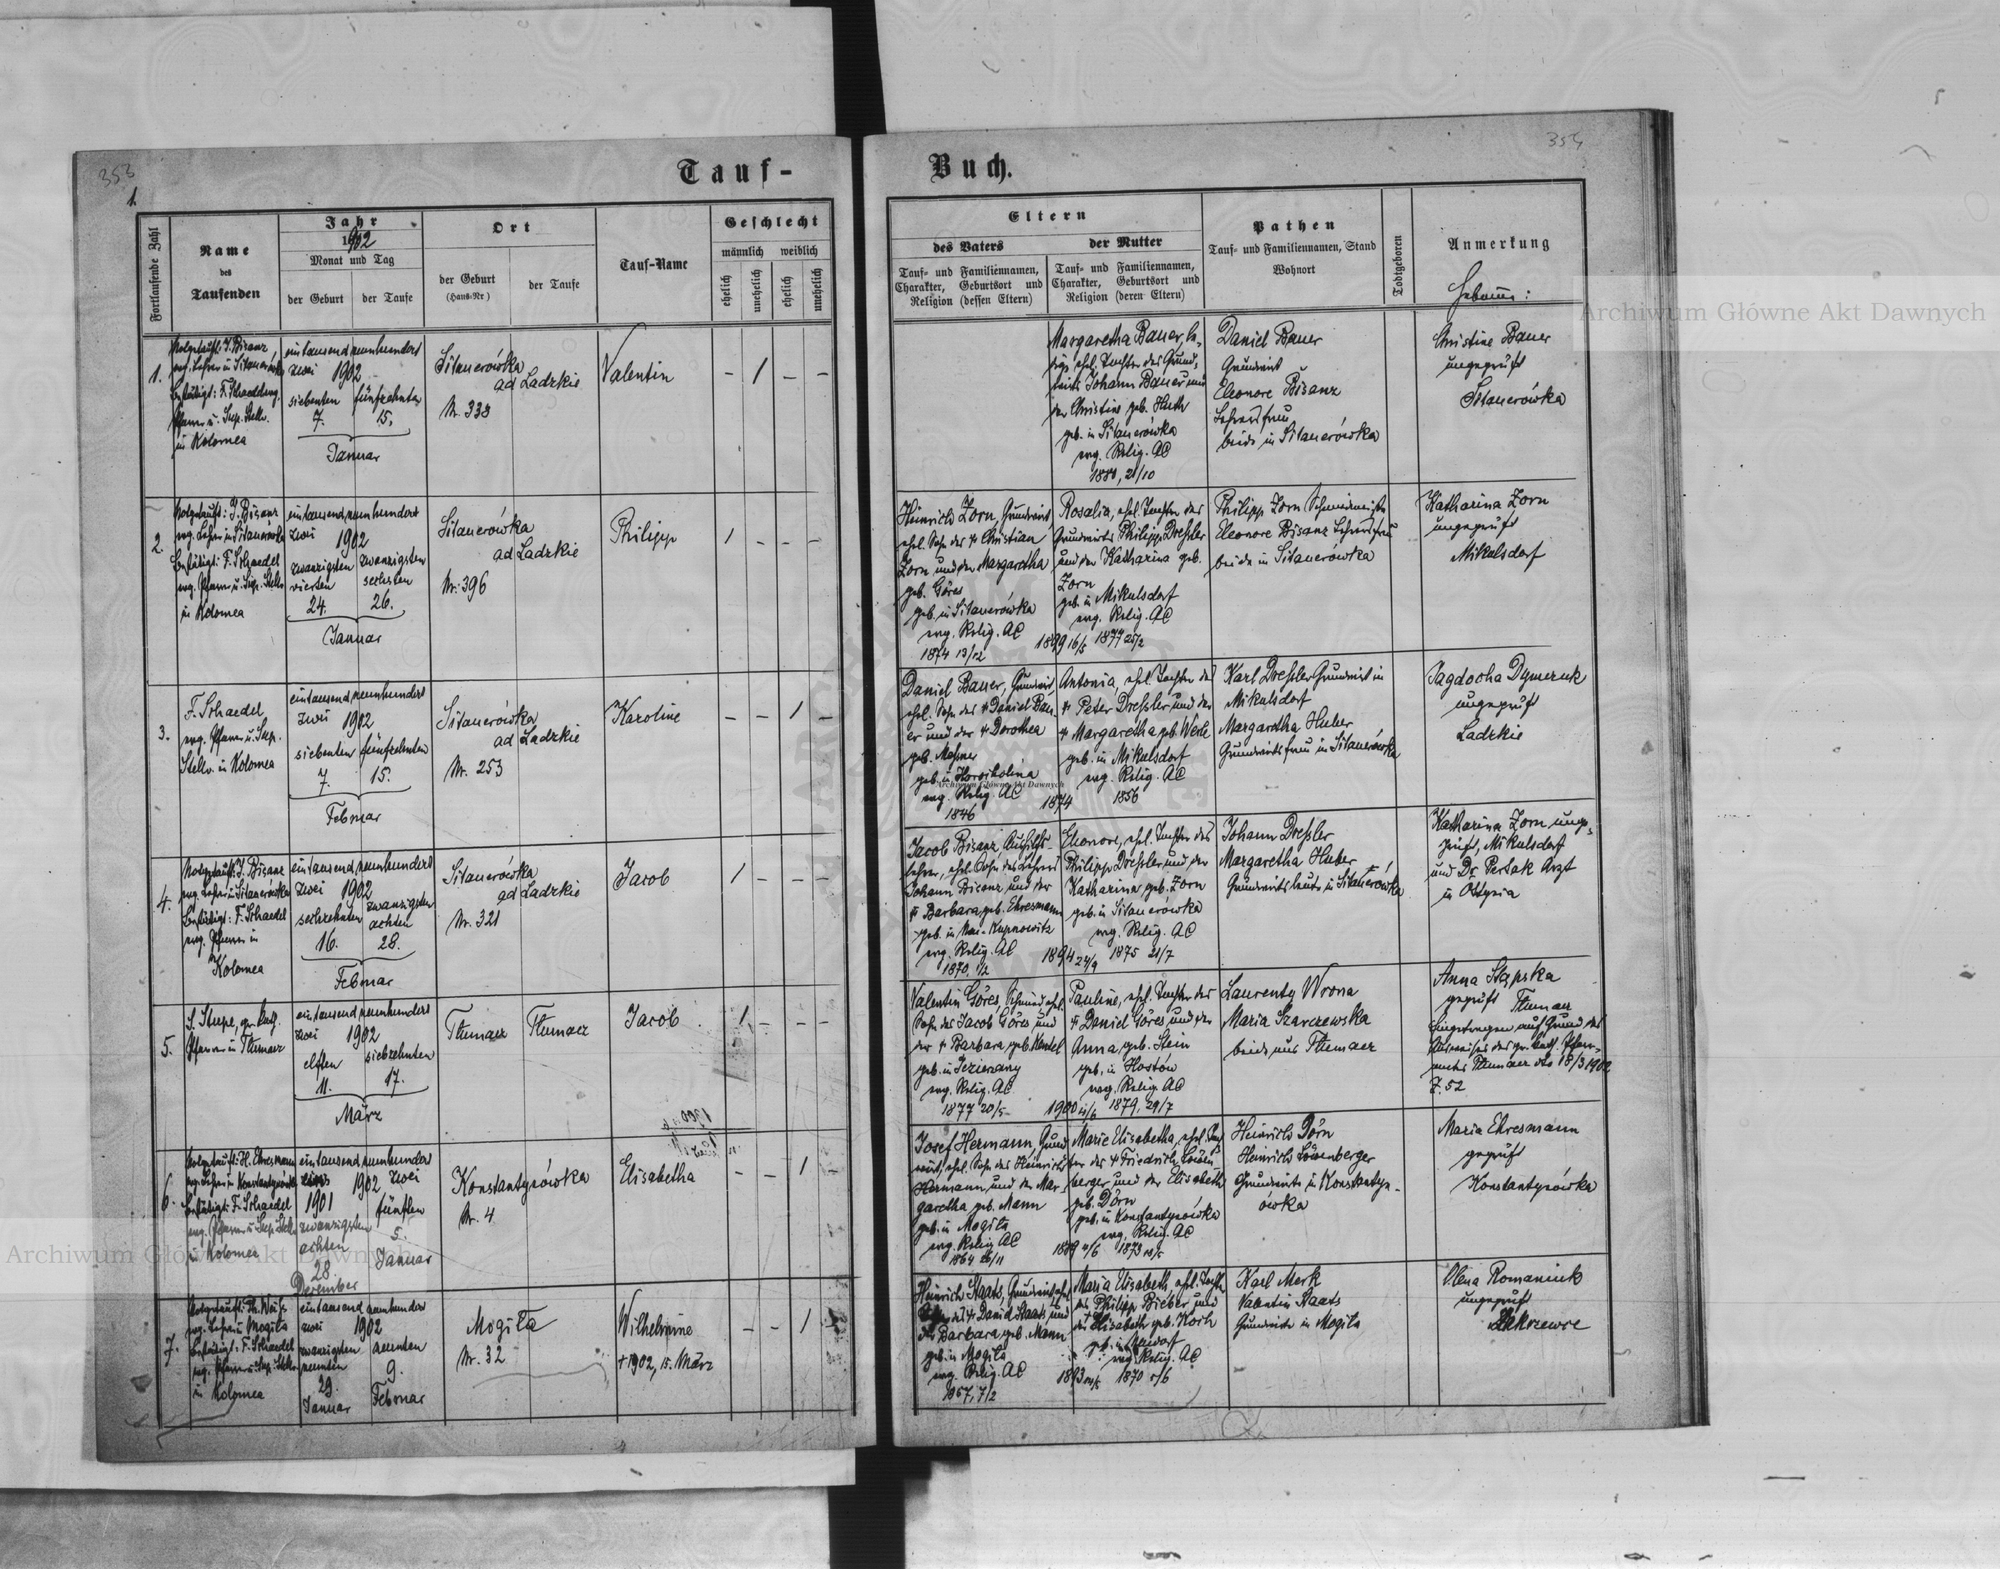 353
1.
Tauf-
Fortlaufende Zahl
Name
des
Taufenden
Jahr
1902
Monat und Tag
der Geburt
der Taufe
Ort
der Geburt
(Haus-Nr)
der Taufe
Tauf-Name
Geschlecht
männlich
weiblich
ehelich
unehelich
ehelich
unehelich
1.
Notgetauft: J. Bisanz
ev. Lehrer in Sitauerówka
Bestätigt: F. Schaedel evg.
Pfarrer u. Sup. Stellv.
in Kolomea
eintausend neunhundert
zwei 1902
siebenten fünfzehnten
7. 15.
Januar
Sitauerówka
ad Ladzkie
Nr. 338
Valentin
– 1 – –
2.
Notgetauft: J. Bisanz
evg. Lehrer in Sitauerówka
Bestätigt: F. Schaedel
evg. Pfarrer u. Sup. Stellv.
in Kolomea
eintausend neunhundert
zwei 1902
zwanzigsten zwanzigsten
vierten sechsten
24. 26.
Januar
Sitauerówka
ad Ladzkie
Nr. 396
Philipp
1 – – –
3.
F. Schaedel
evg. Pfarrer u. Sup.
Stellv. in Kolomea
eintausend neunhundert
zwei 1902
siebenten fünfzehnten
7. 15.
Februar
Sitauerówka
ad Ladzkie
Nr. 253
Karoline
– – 1 –
4.
Notgetauft: J. Bisanz
evg. Lehrer in Sitauerówka
Bestätigt: F. Schaedel
evg. Pfarrer in
Kolomea
eintausend neunhundert
zwei 1902
sechzehnten zwanzigsten
achten
16. 28.
Februar
Sitauerówka
ad Ladzkie
Nr. 321
Jacob
1 – – –
5.
Pfarrer in Tłumacz
eintausend neunhundert
zwei 1902
elften siebzehnten
11. 17.
März
Tłumacz Tłumacz
Jacob
1 – – –
6.
Notgetauft: H. Ehresmann
evg. Lehrer in Konstantynówka
Bestätigt: F. Schaedel
evg. Pfarrer u. Sup. Stellv.
in Kolomea
eintausend neunhundert
1902 zwei
1901
zwanzigsten fünften
achten 5.
28. Januar
Dezember
Konstantynówka
Nr. 4
Elisabetha
– – 1 –
7.
Notgetauft: Ph. Weiss
evg. Lehrer in Mogiła
Bestätigt: F. Schaedel
evg. Pfarrer u. Sup. Stellv.
in Kolomea
eintausend neunhundert
zwei 1902
zwanzigsten neunten
neunten 9.
29. Februar
Januar
Mogiła
Nr. 32
Wilhelmine
+ 1902, 15. März
– – 1 –
354
Buch.
Eltern
des Vaters
der Mutter
Tauf- und Familiennamen,
Charakter, Geburtsort und
Religion (dessen Eltern)
Tauf- und Familiennamen,
Charakter, Geburtsort und
Religion (deren Eltern)
Pathen
Tauf- und Familiennamen, Stand
Wohnort
Todtgeboren
Anmerkung
Hebamme:
Margaretha Bauer, le-
dige ehel. Tochter des Grund-
wirts Johann Bauer und
der Christine geb. Huth
geb. in Sitauerówka
evg. Relig. AC
1880, 21/10
Daniel Bauer
Grundwirt
Eleonore Bisanz
Lehrersfrau
beide in Sitauerówka
Christine Bauer
ungeprüft
Sitauerówka
Heinrich Zorn, Grundwirt
ehel. Sohn des + Christian
Zorn und der Margaretha
geb. Göres
geb. in Sitauerówka
evg. Relig. AC
1874 13/12
1899 16/5
Rosalia, ehel. Tochter des
Grundwirts Philipp Dreßler
und der Katharina geb.
Zorn
geb. in Mikulsdorf
evg. Relig. AC
1877 25/2
Philipp Zorn Schmiedmeister
Eleonore Bisanz Lehrersfrau
beide in Sitauerówka
Katharina Zorn
ungeprüft
Mikulsdorf
Daniel Bauer, Grundwirt
ehel. Sohn des + Daniel Bau-
er und der + Dorothea
geb. Mohner
geb. in Horocholina
evg. Relig. AC
1846
1874
Antonia, ehel. Tochter des
+ Peter Dreßler und der
+ Margaretha geb. Werle
geb. in Mikulsdorf
evg. Relig. AC
1856
Karl Dreßler Grundwirt in
Mikulsdorf
Margaretha Huber
Grundwirtsfrau in Sitauerówka
Jagdocha Dymczuk
ungeprüft
Ladzkie
Jacob Bisanz, Aushilfs-
lehrer, ehel. Sohn des Lehrers
Johann Bisanz und der
+ Barbara, geb. Ehresmann
geb. in Neu-Kupnowitz
evg. Relig. AC
1870, 1/2
1894 24/9
Eleonore, ehel. Tochter des
Philipp Dreßler und der
Katharina geb. Zorn
geb. in Sitauerówka
evg. Relig. AC
1875 21/7
Johann Dreßler
Margaretha Huber
Grundwirtsleute in Sitauerówka
Katharina Zorn unge-
prüft, Mikulsdorf
und Dr. Persak Arzt
in Ottynia
Valentin Göres, Schmied, ehel.
Sohn des Jacob Göres und
der + Barbara, geb. Henkel
geb. in Jezierzany
evg. Relig. AC
1877 20/5
1900 11/6
Pauline, ehel. Tochter des
+ Daniel Göres und der
Anna, geb. Stein
geb. in Hostów
evg. Relig. AC
1879, 29/7
Laurenty Wrona
Maria Szarczewska
beide aus Tłumacz
Anna Stapska
geprüft Tłumacz
Eingetragen auf Grund des
Ausweises des gr. kath. Pfarr-
amtes Tłumacz dto 18/3 1902
Z. 52
Josef Hermann, Grund-
wirt, ehel. Sohn des Heinrich
Hermann und der Mar-
garetha geb. Mann
geb. in Mogiła
evg. Relig. AC
1864 26/11
Marie Elisabetha, ehel. Toch-
ter des + Friedrich Löwen-
berger und der Elisabetha
geb. Dörn
geb. in Konstantynówka
evg. Relig. AC
Heinrich Dörn
Heinrich Löwenberger
Grundwirte in Konstantyn-
ówka
Maria Ehresmann
geprüft
Konstantynówka
Heinrich Staats, Grundwirt, ehel.
Sohn des + David Staats und
der Barbara, geb. Mann
geb. in Mogiła
evg. Relig. AC
1867, 7/2
Maria Elisabeth, ehel. Tochter
des Philipp Bieber und
der Elisabeth geb. Koch
geb. in Neudorf
evg. Relig. AC
1870 5/6
Karl Merk
Valentin Staats
Grundwirte in Mogiła
Olena Romaniuk
ungeprüft
Zakrzewce
Archiwum Główne Akt Dawnych
Archiwum Główne Akt Dawnych
Archiwum Główne Akt Dawnych